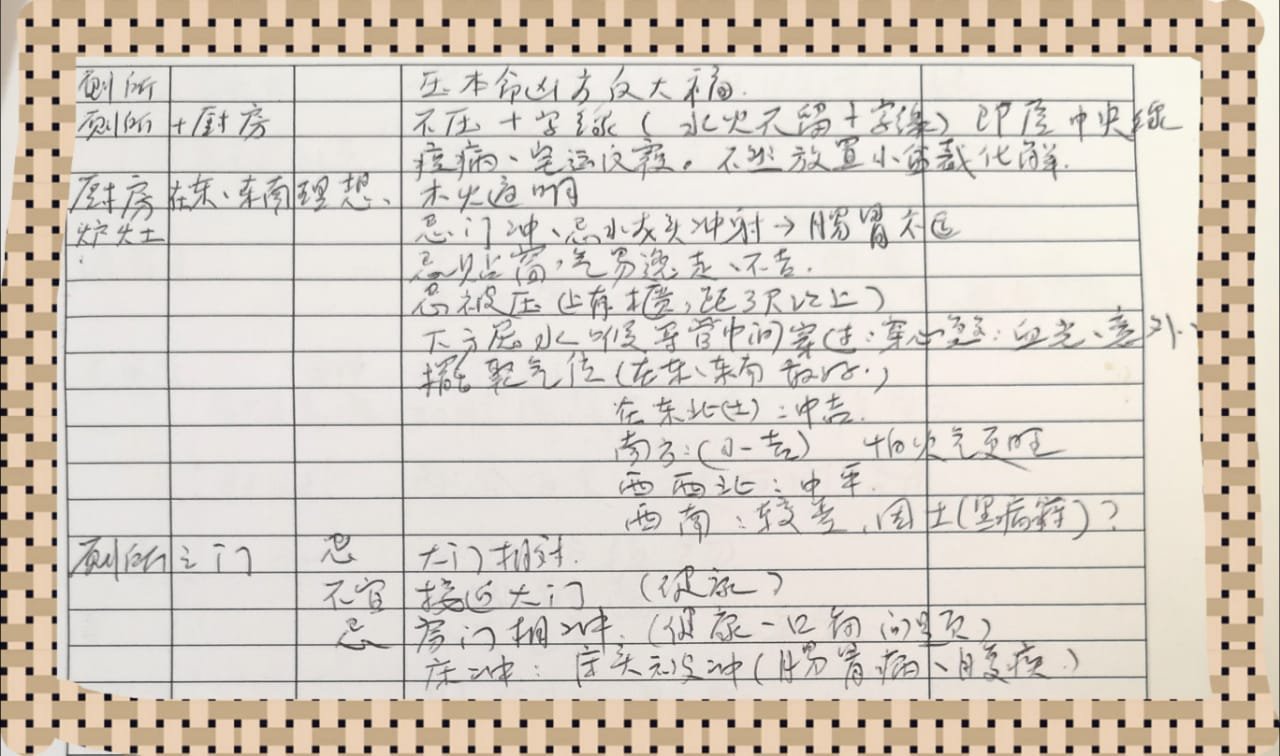 厕所 压本命凶方反大福.
厕所+厨房 不压十字线(水火不留十字线)即房中央线
疾病、宅运反覆。不然放置小盆栽化解.
厨房在东、东南理想、木火通明
炉灶 忌门冲、忌水龙头冲射→肠胃不适
忌贴窗,气易逸走、不吉.
忌被压(上有柜,距3尺以上)
下方忌水喉导管中间穿过:穿心煞:血光、意外、
摆聚气位(在东、东南较好.)
在东北(土):中吉
南方:(小吉) 怕火气更旺
西西北:中平.
西南:较差,因土(里病符)?
厕所之门 忌 大门相对.
不宜 接近大门 (健康)
忌 房门相冲.(健康一口的问题)
床冲:床头忌被冲(肠胃病、腹疾.)